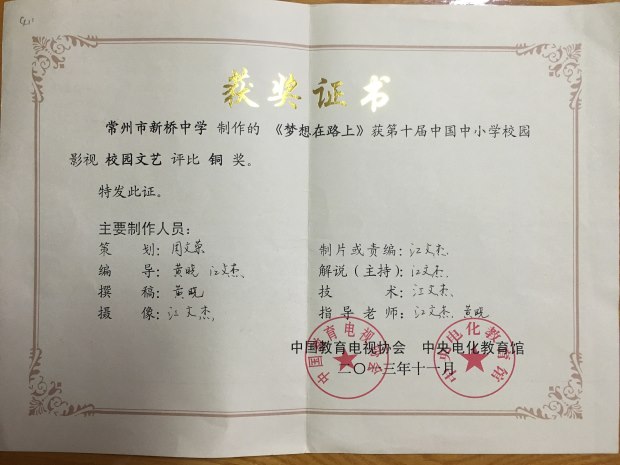 获奖证书
常州市新桥中学 制作的 《梦想在路上》获第十届中国中小学校园
影视 校园文艺 评比 铜 奖。
特发此证。
主要制作人员：
策 划：周文荣 制片或责编：江文杰、
编 导：黄晓 江文杰、 解说（主持）：江文杰、
撰 稿：黄晓 技 术：江文杰、
摄 像：江文杰、 指导老师：江文杰、黄晓
中国教育电视协会 中央电化教育馆
二〇一三年十一月
中国教育电视协会
中央电化教育馆